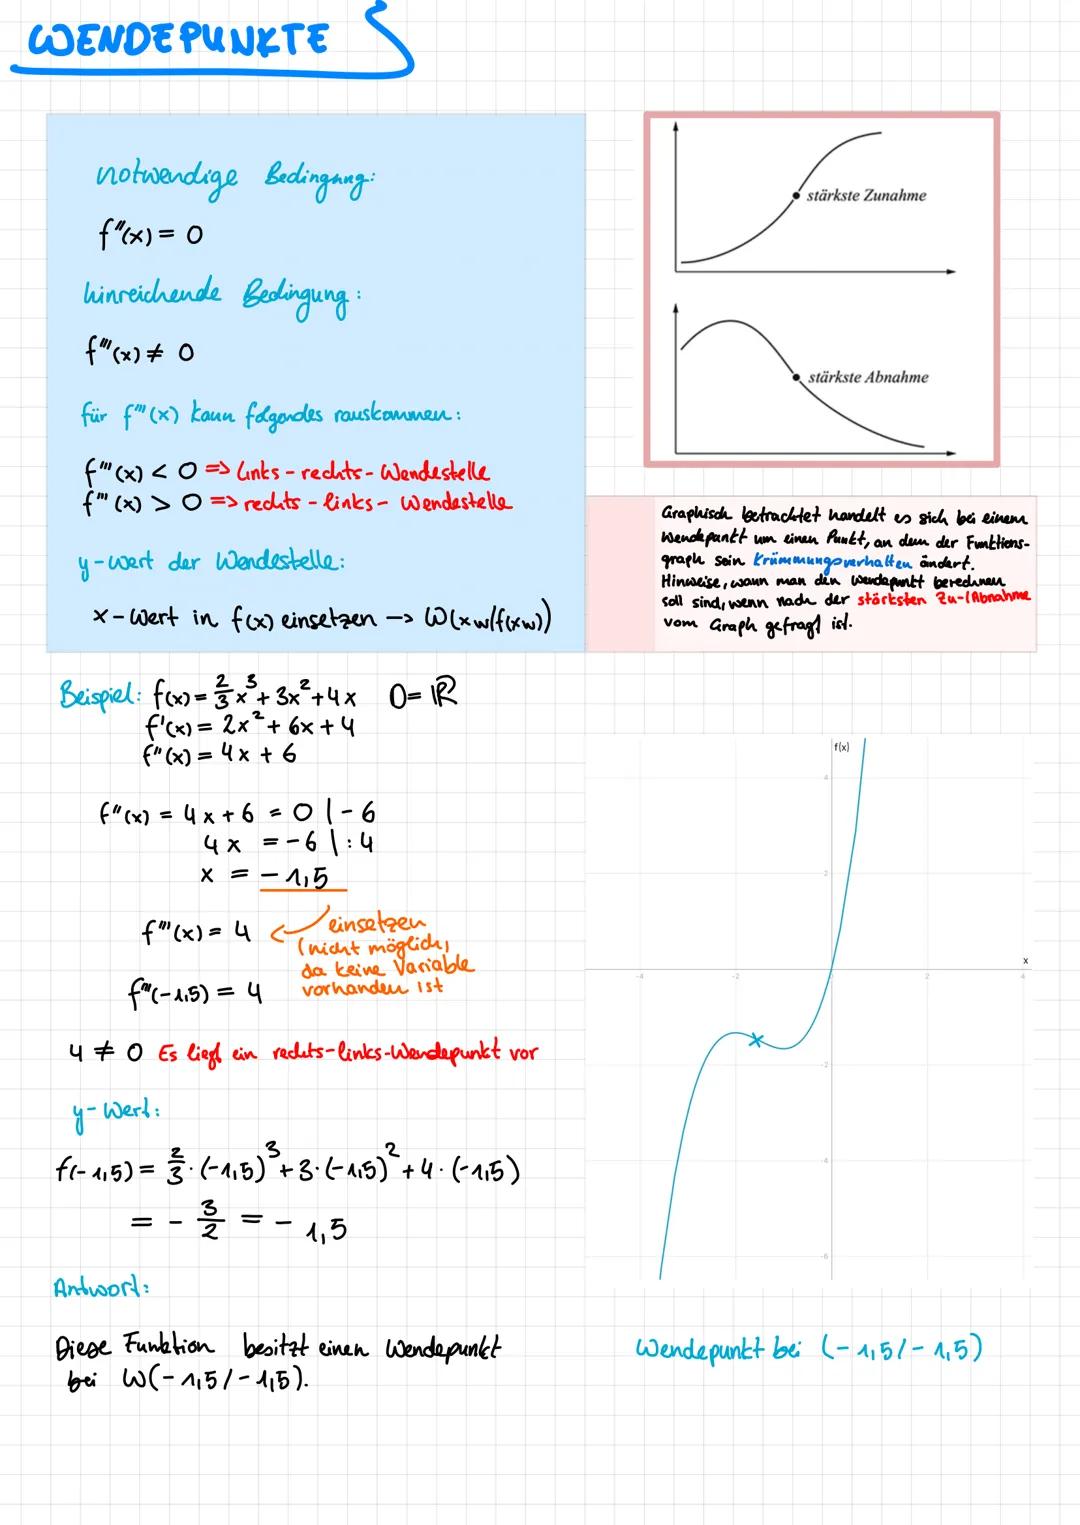 WENDEPUNKTE
notwendige Bedingung:
f"(x) = 0
hinreichende Bedingung:
f'''(x) ≠ 0
für f'''(x) kann folgendes rauskommen:
f'''(x) < 0 => Links-rechts-Wendestelle
f'''(x) > 0 => rechts-links-Wendestelle
y-wert der Wendestelle:
x-Wert in f(x) einsetzen -> W(xw/f(xw))
stärkste Zunahme
stärkste Abnahme
Graphisch betrachtet handelt es sich bei einem
Wendepunkt um einen Punkt, an dem der Funktions-
graph sein Krümmungsverhalten ändert.
Hinweise, wann man den Wendepunkt berechnen
soll sind, wenn nach der stärksten Zu-/Abnahme
vom Graph gefragt ist.
Beispiel: f(x) = 2/3 x³ + 3x² + 4x D = ℝ
f'(x) = 2x² + 6x + 4
f"(x) = 4x + 6
f"(x) = 4x + 6 = 0 | - 6
4x = -6 | : 4
x = -1,5
f'''(x) = 4 <- einsetzen
(nicht möglich,
da keine Variable
vorhanden ist
f'''(-1,5) = 4
4 ≠ 0 Es liegt ein rechts-links-Wendepunkt vor
y-Wert:
f(-1,5) = 2/3 · (-1,5)³ + 3 · (-1,5)² + 4 · (-1,5)
= - 3/2 = - 1,5
Antwort:
Diese Funktion besitzt einen Wendepunkt
bei W(-1,5/-1,5).
f(x)
4
2
x
-4 -2 2 4
-2
-4
-6
Wendepunkt bei (-1,5/-1,5)